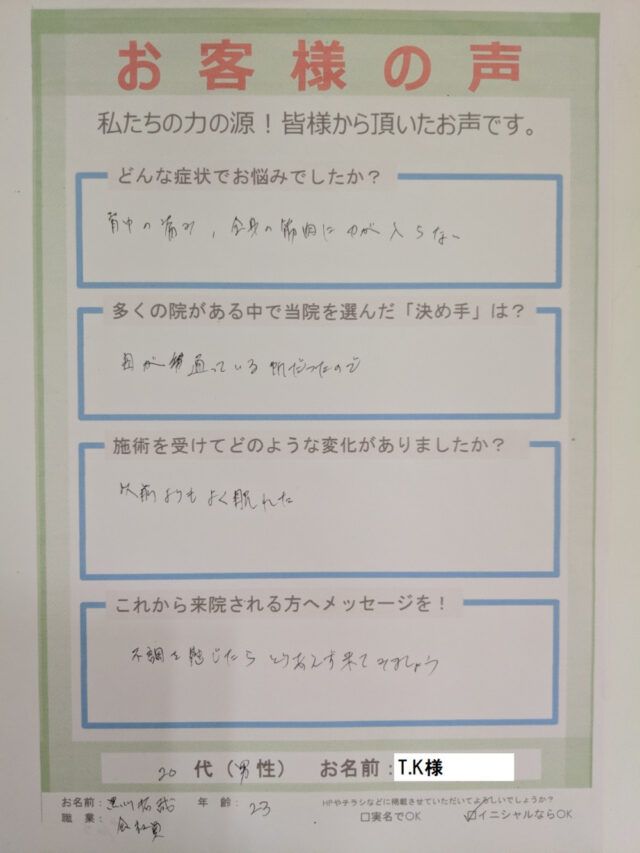 お客様の声
私たちの力の源！皆様から頂いたお声です。
どんな症状でお悩みでしたか？
背中の痛み，全身の筋肉に力が入らない
多くの院がある中で当院を選んだ「決め手」は？
通っている所だったので
施術を受けてどのような変化がありましたか？
以前よりもよく眠れた
これから来院される方へメッセージを！
不調を感じたらとりあえず来てみましょう
20代（男性） お名前：T.K様
お名前： 年齢：23
HPやチラシなどに掲載させていただいてよろしいでしょうか？
職業：会社員 □実名でOK ☑イニシャルならOK